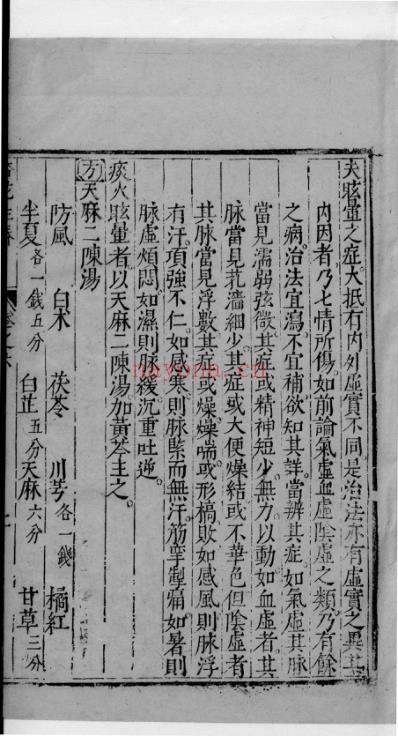 夫眩暈之症大抵有內外虛實不同是治法亦有虛實之異其
內因者乃七情所傷如前論氣虛血虛陰虛之類乃有餘
之病治法宜瀉不宜補欲知其詳當辨其症如氣虛其脉
當見濡弱弦微其症或精神短少無力以動如血虛者其
脉當見芤濇細少其症或大便燥結或不華色但陰虛者
其脉當見浮數其症或燥燥喘或形槁敗如感風則脉浮
有汗項強不仁如感寒則脉緊而無汗筋攣掣痛如暑則
脉虛煩悶如濕則脉緩沉重吐逆
痰火眩暈者以天麻二陳湯加黃芩主之
方天麻二陳湯
防風 白术 茯苓 川芎各一錢 橘紅
半夏各一錢五分 白芷五分 天麻六分 甘草三分
卷之六
nayona.cn